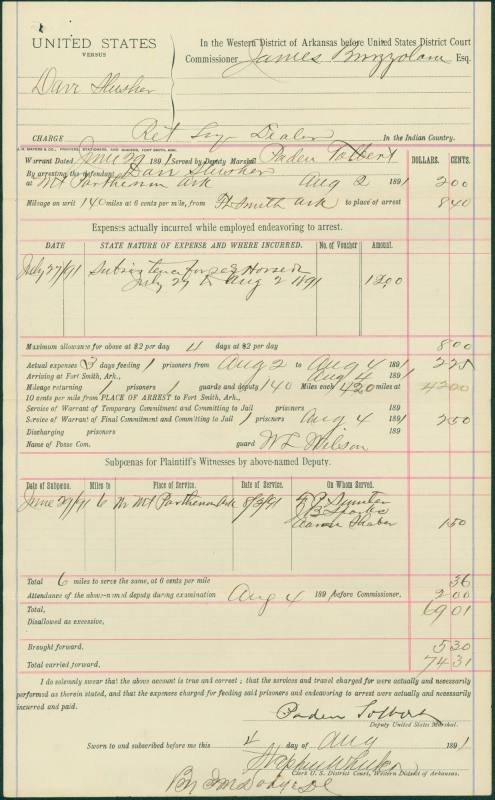 UNITED STATES
VERSUS
Dave Slusher
In the Western District of Arkansas before United States District Court
Commissioner James Brizzolara Esq.
CHARGE Ret Liq Dealer in the Indian Country.
J. H. MAYERS & CO., PRINTERS, STATIONERS, AND BINDERS, FORT SMITH, ARK.
DOLLARS. CENTS.
Warrant Dated June 29 1891 Served by Deputy Marshal Paden Tolbert
By arresting the defendant Dave Slusher
at Mt Parthenon Ark Aug 2 1891 2 00
Mileage on writ 140 miles at 6 cents per mile, from Ft Smith Ark to place of arrest 8 40
Expenses actually incurred while employed endeavoring to arrest.
DATE STATE NATURE OF EXPENSE AND WHERE INCURRED. No. of Voucher Amount.
July 27/91 Subsistence for self & Horse
July 27 to Aug 2 1891 12 00
Maximum allowance for above at $2 per day 4 days at $2 per day 8 00
Actual expenses 3 days feeding 1 prisoners from Aug 2 to Aug 4 1891 2 25
Arriving at Fort Smith, Ark., Aug 4 1891
Mileage returning 1 prisoners 1 guards and deputy 140 Miles each 420 miles at 42 00
10 cents per mile from PLACE OF ARREST to Fort Smith, Ark.,
Service of Warrant of Temporary Commitment and Committing to Jail prisoners 189
Service of Warrant of Final Commitment and Committing to Jail 1 prisoners Aug 4 1891 2 50
Discharging prisoners 189
Name of Posse Com. guard W L Wilson
Subpœnas for Plaintiff's Witnesses by above-named Deputy.
Date of Subpœna. Miles to Place of Service. Date of Service. On Whom Served.
June 29/91 6 Nr Mt Parthenon Ark 8/3/91
Sparks
Aaron 1 50
Total 6 miles to serve the same, at 6 cents per mile 36
Attendance of the above-named deputy during examination Aug 4 1891 before Commissioner. 2 00
Total, 69 01
Disallowed as excessive,
Brought forward. 5 30
Total carried forward. 74 31
I do solemnly swear that the above account is true and correct; that the services and travel charged for were actually and necessarily
performed as therein stated, and that the expenses charged for feeding said prisoners and endeavoring to arrest were actually and necessarily
incurred and paid.
Paden Tolbert
Deputy United States Marshal.
Sworn to and subscribed before me this 4 day of Aug 1891
Stephen Wheeler
Clerk U. S. District Court, Western District of Arkansas.
By I M Dodge DC